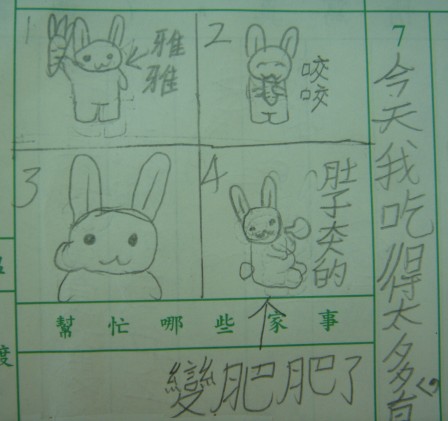 1
雅雅
2
咬咬
3
4
肚子大大的
幫忙哪些家事
變肥肥了
7
今天我吃得太多，
度